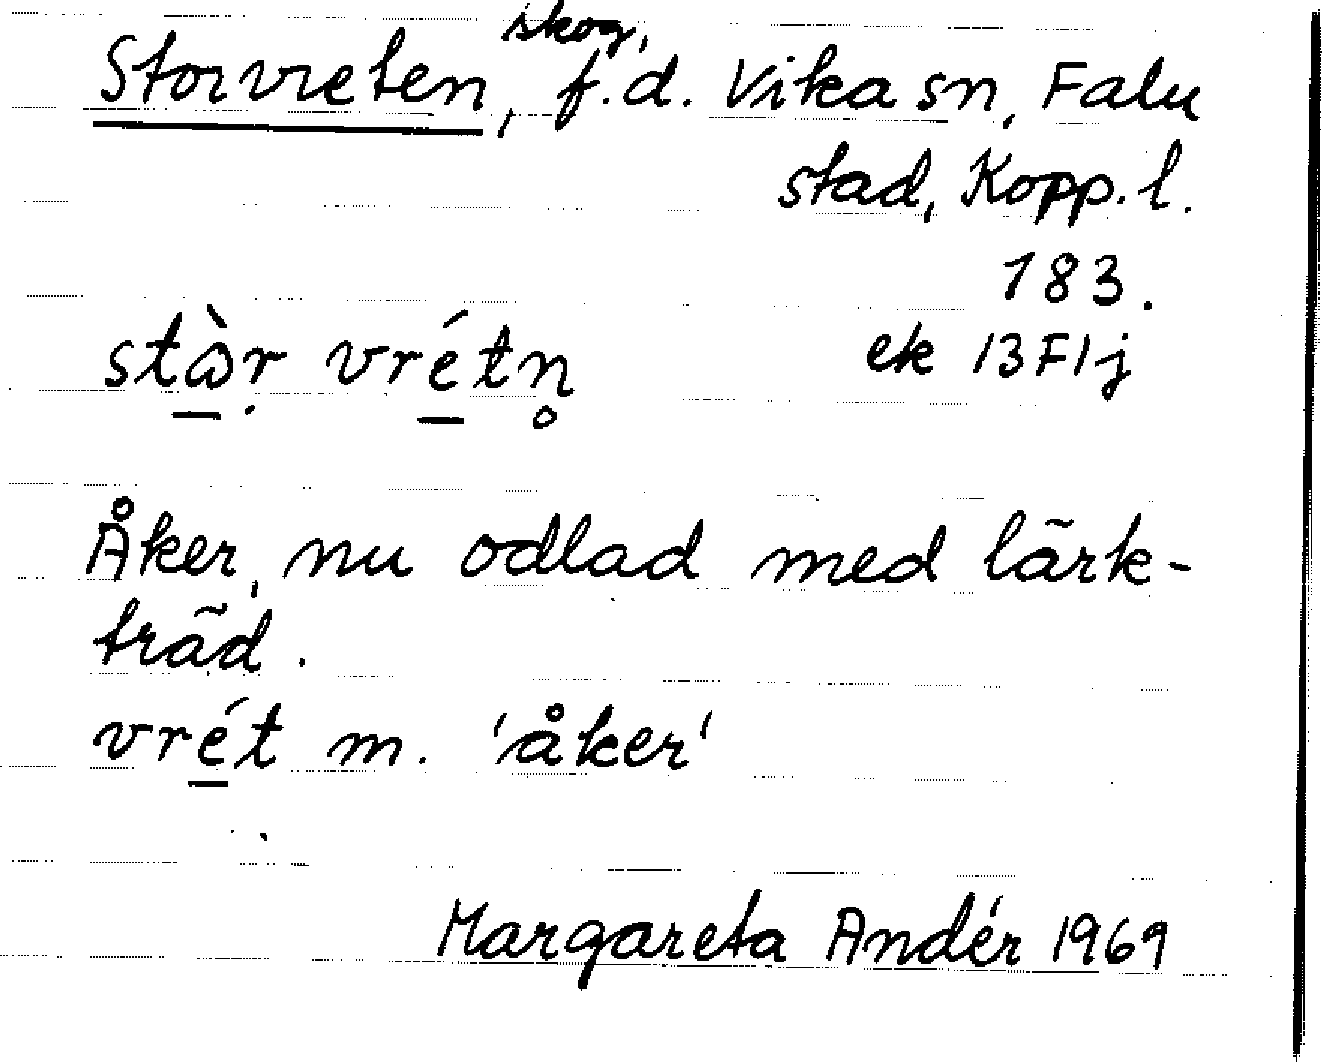 Storvreten, skog, f.d. Vika sn, Falu
stad, Kopp. l.
183.
ek 13F1j
stɷ̀r vrétn̥
Åker, nu odlad med lärk-
träd.
vrét m. 'åker'
Margareta Andér 1969